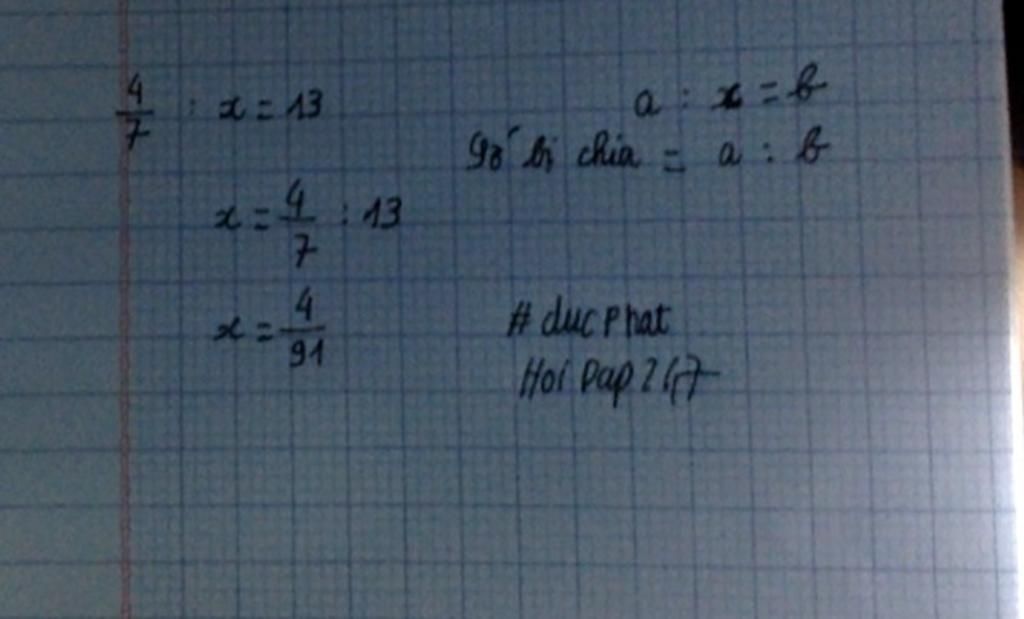 4/7 : x = 13
a : x = b
Số bị chia = a : b
x = 4/7 : 13
x = 4/91
# ducphat
Hoi Dap 247